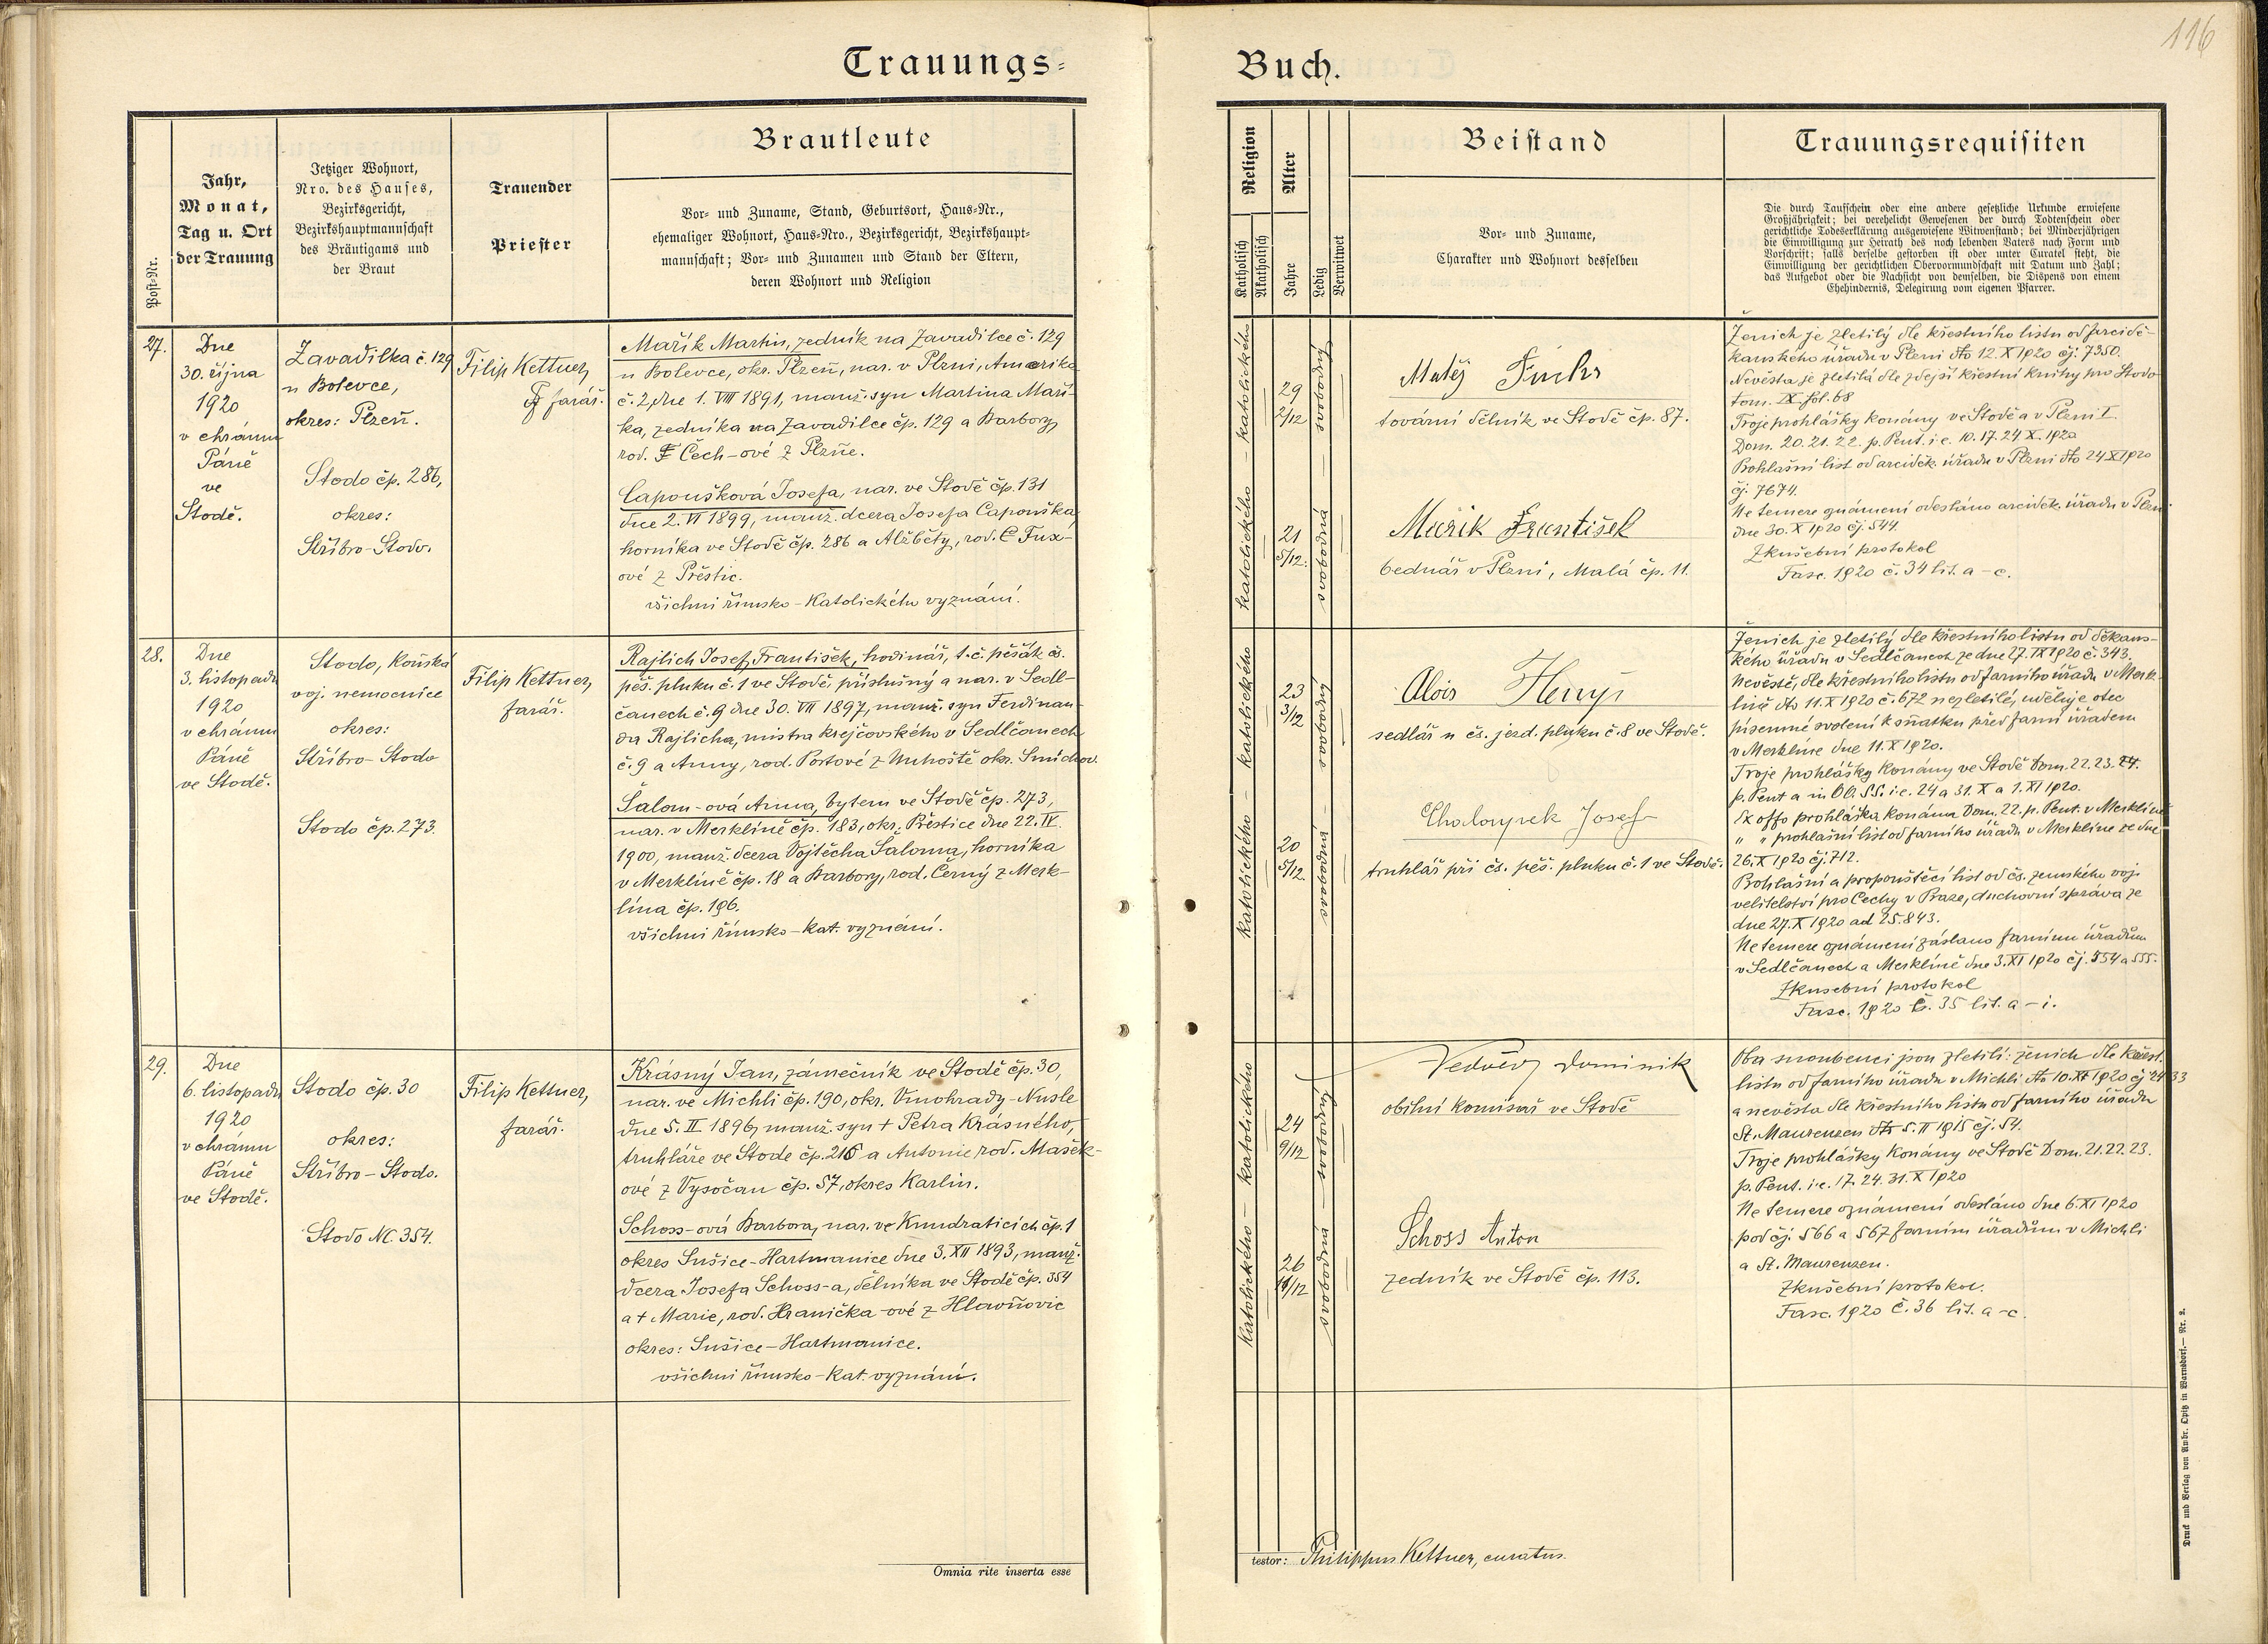 116
Trauungs=
Buch.
Post-Nr.
Jahr,
Monat,
Tag u. Ort
der Trauung
Jetziger Wohnort,
Nro. des Hauses,
Bezirksgericht,
Bezirkshauptmannschaft
des Bräutigams und
der Braut
Trauender
Priester
Brautleute
Vor- und Zuname, Stand, Geburtsort, Haus-Nr.,
ehemaliger Wohnort, Haus-Nro., Bezirksgericht, Bezirkshaupt-
mannschaft; Vor- und Zunamen und Stand der Eltern,
deren Wohnort und Religion
Religion
Katholisch
Akatholisch
Alter
Jahre
Ledig
Verwitwet
Beistand
Vor- und Zuname,
Charakter und Wohnort desselben
Trauungsrequisiten
Die durch Taufschein oder eine andere gesetzliche Urkunde erwiesene
Großjährigkeit; bei verehelicht Gewesenen der durch Todtenschein oder
gerichtliche Todeserklärung ausgewiesene Witwenstand; bei Minderjährigen
die Einwilligung zur Heirath des noch lebenden Vaters nach Form und
Vorschrift; falls derselbe gestorben ist oder unter Curatel steht, die
Einwilligung der gerichtlichen Obervormundschaft mit Datum und Zahl;
das Aufgebot oder die Nachsicht von demselben, die Dispens von einem
Ehehindernis, Delegirung vom eigenen Pfarrer.
27.
Dne
30. října
1920
v chrámu
Páně
ve
Stodě.
Zavadilka č. 129
u Bolevce,
okres: Plzeň.
Stodo čp. 286,
okres:
Stříbro-Stodo.
Filip Kettner,
farář.
Mařík Martin, zedník na Zavadilce č. 129
u Bolevce, okr. Plzeň, nar. v Plzni, Amerika
č. 2, dne 1. VIII 1891, manž. syn Martina Maří-
ka, zedníka na Zavadilce čp. 129 a Barbory,
rod. Čech-ové z Plzně.
Capoušková Josefa, nar. ve Stodě čp. 131
dne 2. VI 1899, manž. dcera Josefa Capouška,
horníka ve Stodě čp. 286 a Alžběty, rod. Fux-
ové z Přeštic.
všichni římsko-katolického vyznání.
katolického - katolického
29
2/12
svobodný
21
5/12.
svobodná
Matěj Fuchs
tovární dělník ve Stodě čp. 87.
Mařík František
bednář v Plzni, Malá čp. 11.
Ženich je zletilý dle křestního listu od arcidě-
kanského úřadu v Plzni dto 12. X 1920 čj. 7350.
Nevěsta je zletilá dle zdejší křestní knihy pro Stodo
tom. IX. fol. 68
Troje prohlášky konány ve Stodě a v Plzni I.
Dom. 20. 21. 22. p. Pent. i. e. 10. 17. 24 X. 1920
Prohlašní list od arciděk. úřadu v Plzni dto 24 X 1920
čj. 7674.
Ne temere oznámení odesláno arciděk. úřadu v Plzni
dne 30. X 1920 čj. 544.
Zkušební protokol
Fasc. 1920 č. 34 lit. a-c.
28.
Dne
3. listopadu
1920
v chrámu
Páně
ve Stodě.
Stodo, Koňská
voj. nemocnice
okres:
Stříbro-Stodo
Stodo čp. 273.
Filip Kettner,
farář.
Rajlich Josef František, hodinář, t. č. pěšák čs.
pěš. pluku č. 1 ve Stodě, příslušný a nar. v Sedl-
čanech č. 9 dne 30. VII 1897, manž. syn Ferdinan-
da Rajlicha, mistra krejčovského v Sedlčanech
č. 9 a Anny, rod. Portové z okr. Smíchov.
Šalom-ová Anna, bytem ve Stodě čp. 273,
nar. v Merklíně čp. 183, okr. Přeštice dne 22. IV.
1900, manž. dcera Vojtěcha Šaloma, horníka
v Merklíně čp. 18 a Barbory, rod. Černý z Merk-
lína čp. 196.
všichni římsko-kat. vyznání.
katolického - katolického
23
3/12
svobodný
20
5/12
svobodná
Alois Henyš
sedlář u čs. jezd. pluku č. 8 ve Stodě.
Josef
truhlář při čs. pěš. pluku č. 1 ve Stodě.
Ženich je zletilý dle křestního listu od děkans-
kého úřadu v Sedlčanech ze dne 27. IX 1920 č. 343.
Nevěstě, dle křestního listu od farního úřadu v Merk-
líně dto 11. X 1920 č. 672 nezletilé, uděluje otec
písemné svolení k sňatku před farní úřadem
v Merklíně dne 11. X 1920.
Troje prohlášky konány ve Stodě Dom. 22. 23. 24.
p. Pent a in OO. SS. i. e. 24 a 31. X a 1. XI 1920.
Ex offo prohláška konána Dom. 22. p. Pent. v Merklíně
" " prohlašní list od farního úřadu v Merklíně ze dne
26. X 1920 čj. 712.
Prohlašní a propouštěcí list od čs. zemského voj.
velitelství pro Čechy v Praze, duchovní správa ze
dne 27. X 1920 ad 25.843.
Ne temere oznámení zasláno farním úřadům
v Sedlčanech a Merklíně dne 3. XI 1920 čj. 554 a 555.
Zkusební protokol
Fasc. 1920 č. 35 lit. a-i.
29.
Dne
6. listopadu
1920
v chrámu
Páně
ve Stodě.
Stodo čp. 30
okres:
Stříbro-Stodo.
Stodo NC. 354.
Filip Kettner,
farář.
Krásný Jan, zámečník ve Stodě čp. 30,
nar. ve Michli čp. 190, okr. Vinohrady-Nusle
dne 5. II 1896, manž. syn + Petra Krásného,
truhláře ve Stodě čp. 216 a Antonie rod. Mašek-
ové z Vysočan čp. 57, okres Karlín.
Schoss-ová Barbora, nar. ve Kundraticích čp. 1
okres Sušice-Hartmanice dne 3. XII 1893, manž.
dcera Josefa Schoss-a, dělníka ve Stodě čp. 354
a + Marie, rod. Hranička-ové z Hlavňovic
okres: Sušice-Hartmanice.
všichni římsko-kat. vyznání.
katolického - katolického
24
9/12
svobodný
26
11/12
svobodná
Nedvěd Dominik
obilní komisař ve Stodě
Schoss Anton
zedník ve Stodě čp. 113.
Oba snoubenci jsou zletilí: ženich dle křest.
listu od farního úřadu v Michli dto 10. XI 1920 čj 2433
a nevěsta dle křestního listu od farního úřadu
St. Maurenzen dto 5. II 1915 čj. 54.
Troje prohlášky konány ve Stodě Dom. 21. 22. 23.
p. Pent. i. e. 17. 24. 31. X 1920
Ne temere oznámení odesláno dne 6. XI 1920
pod čj. 566 a 567 farním úřadům v Michli
a St. Maurenzen.
Zkušební protokol.
Fasc. 1920 č. 36 lit. a-c.
Omnia rite inserta esse
testor: Philippus Kettner, curatus.
Druck und Verlag von Ambr. Opitz in Warnsdorf. - Nr. 2.